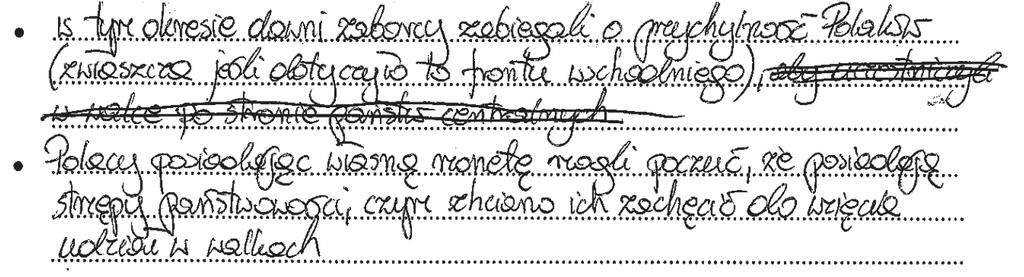 • w tym okresie dawni zaborcy zabiegali o przychylność Polaków
(zwłaszcza jeśli dotyczyło to frontu wschodniego), aby uczestniczyli
w walce po stronie państw centralnych
• Polacy posiadając własną monetę mogli poczuć, że posiadają
strzępy państwowości, czym chciano ich zachęcić do wzięcia
udziału w walkach